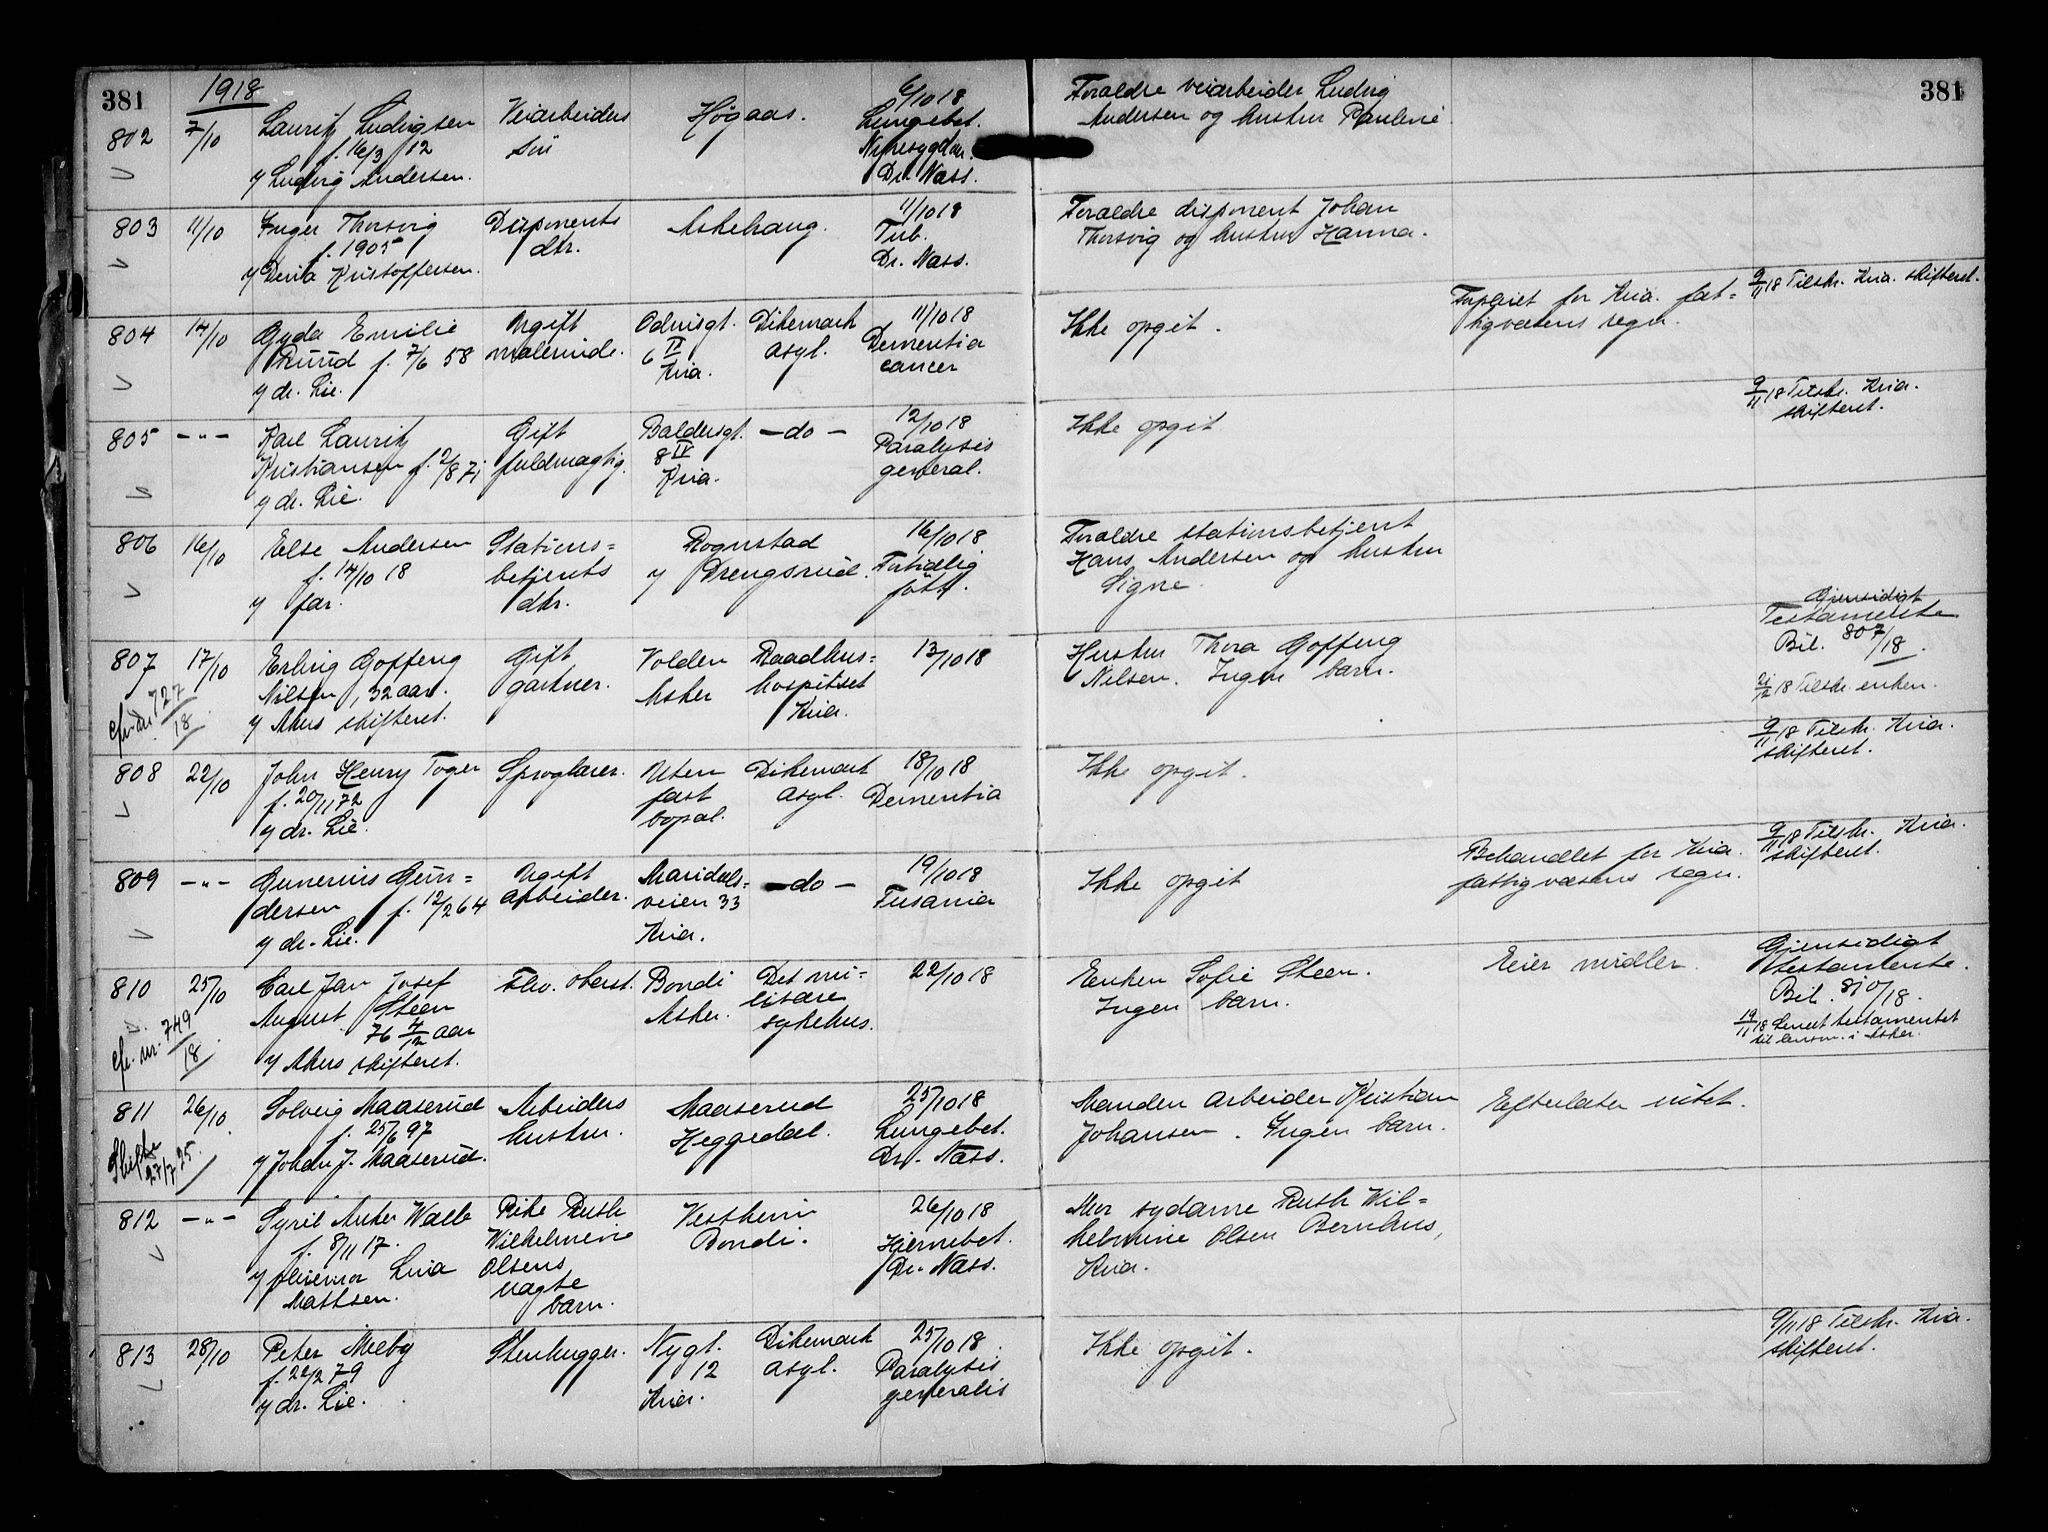 381
1918
381
802
7/10
Lauritz Ludvigsen
f. 16/3 12
v/ Ludvig Andersen.
Veiarbeiders
sön
Høgaas.
6/10 18
Lungebet.
Nyresygdom.
Dr. Næss.
Forældre veiarbeider Ludvig
Andersen og hustru Pauline
803
11/10
Inger Thorsvig
f. 1905
v/ Kristoffersen.
Disponents
dtr.
Askehaug.
11/10 18
Tub.
Dr. Næss.
Forældre disponent Johan
Thorsvig og hustru Hanna.
804
14/10
Gyda Emilie
Ruud f. 7/6 58
v/ dr. Lie.
Ugift
malerinde.
Odinsgt.
6 II
Kria.
Dikemark
asyl.
11/10 18
Dementia
cancer
Ikke opgit.
Forpleiet for Kria. fat=
tigvæsens regn.
9/11 18 Tilskr. Kria. skifteret.
805
-"-
Karl Lauritz
Kristiansen f. 2/8 71
v/ dr. Lie.
Gift
fuldmægtig.
Baldersgt.
8 IV
Kria.
-do-
12/10 18
Paralysis
general.
Ikke opgit
9/11 18 Tilskr. Kria.
skifteret.
806
16/10
Else Andersen
f. 14/10 18
v/ far.
Stations=
betjents
dtr.
Rognstad
v/ Drengsrud.
16/10 18
Fortidlig
født.
Forældre stationsbetjent
Hans Andersen og hustru
Signe.
807
cfr. nr. 727/18
17/10
Erling Goffeng
Nilsen, 32 aar.
v/ Akers skifteret.
Gift
gartner.
Volden
Asker
Raadhus=
hospitset
Kria.
13/10 18
Hustru Thora Goffeng
Nilsen. Ingen barn.
Gjensidigt
Testamente
Bil. 807/18.
21/12 18 Tilskr. enken.
808
22/10
John Henry Toger
f. 20/11 72
v/ dr. Lie.
Sproglærer.
Uten
fast
bopæl.
Dikemark
asyl.
18/10 18
Dementia
Ikke opgit.
9/11 18 Tilskr. Kria.
skifteret.
809
-"-
Gunerius Gun=
dersen f. 12/2 64
v/ dr. Lie.
Ugift
arbeider.
Maridals=
veien 33
Kria.
-do-
19/10 18
Ikke opgit
Behandlet for Kria.
fattigvæsens regn.
9/11 18 Tilskr. Kria.
skifteret.
810
cfr. nr. 749/18
25/10
Carl Jan Josef
August Steen
76 4/12 aar
v/ Akers skifteret.
Fhv. oberst.
Bondi
Asker.
Det mi=
litære
sykehus.
22/10 18
Enken Sofie Steen.
Ingen barn.
Eier midler.
Gjensidigt
testamente.
Bil. 810/18.
19/11 18 Sendt testamentet
til lensm. i Asker.
811
Skifte
27/7 25.
26/10
Solveig Maaserud
f. 25/6 97
v/ Johan J. Maaserud.
Arbeiders
hustru.
Maaserud
Heggedal.
25/10 18
Lungebet.
Dr. Næss.
Manden arbeider Kristian
Johansen. Ingen barn.
Efterlater intet.
812
-"-
Syril Anker Walle
f. 8/11 17.
v/ pleiemor Lina
Mathsen.
Pike Ruth
Wilhelmine
Olsens
uægte
barn.
Vestheim
Bondi.
26/10 18
Hjernebet.
Dr. Næss.
Mor sydame Ruth Wil=
helmine Olsen Bernhus,
Kria.
813
28/10
Peter Mieby
f. 22/2 79
v/ dr. Lie.
Stenhugger.
Nygt.
12
Kria.
Dikemark
asyl.
25/10 18
Paralysis
generalis
Ikke opgit.
9/11 18 Tilskr. Kria.
skifteret.